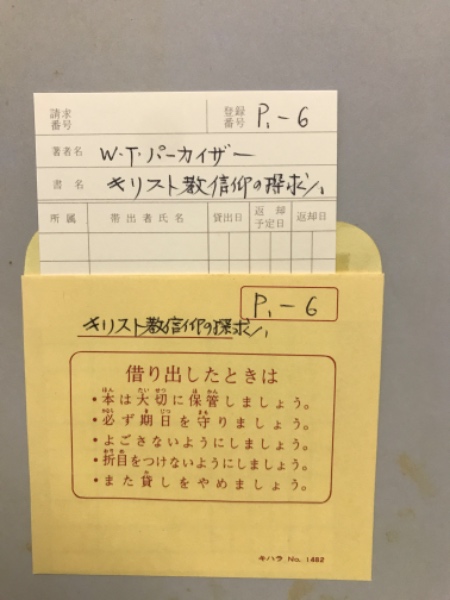 請求番号
登録番号 P.-6
著者名 W.T.パーカイザー
書名 キリスト教信仰の探求
所属 帯出者氏名 貸出日 返却予定日 返却日
P.-6
キリスト教信仰の探求
借り出したときは
・本は大切に保管しましょう。
・必ず期日を守りましょう。
・よごさないようにしましょう。
・折目をつけないようにしましょう。
・また貸しをやめましょう。
キハラ No. 1462